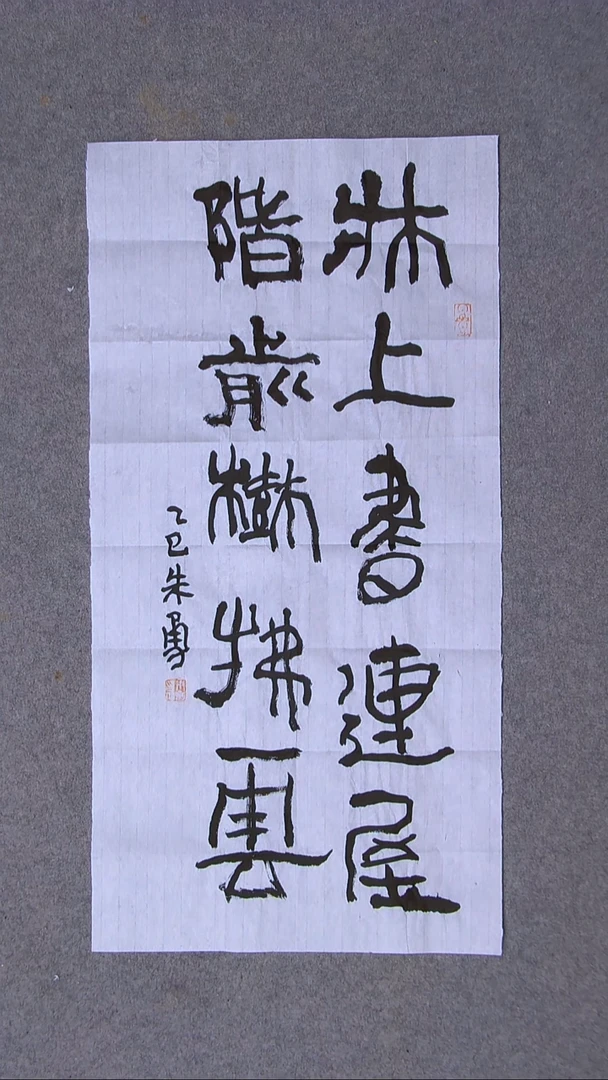 牀上書連屋
階前樹拂雲
乙巳朱勇